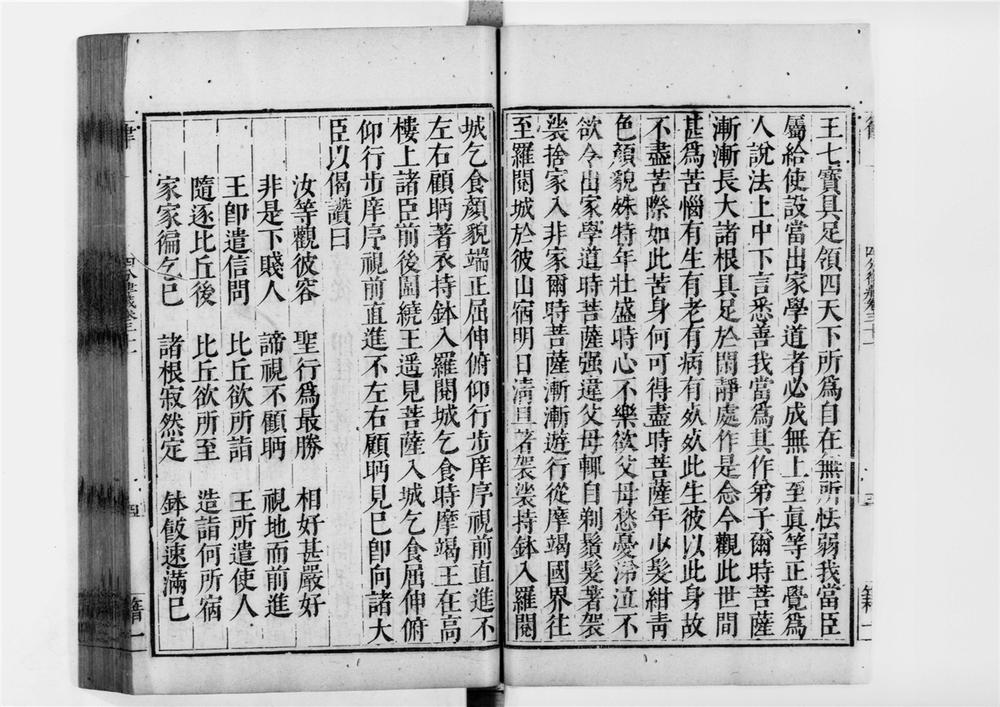 王七寶具足領四天下所為自在無所怯弱我當臣
屬給使設當出家學道者必成無上至真等正覺為
人說法上中下言悉善我當為其作弟子爾時菩薩
漸漸長大諸根具足於閑靜處作是念今觀此世間
甚為苦惱有生有老有病有死死此生彼以此身故
不盡苦際如此苦身何可得盡時菩薩年少髮紺青
色顏貌姝特年壯盛時心不樂欲父母愁憂涕泣不
欲令出家學道時菩薩强違父母輒自剃鬚髮著袈
裟捨家入非家爾時菩薩漸漸遊行從摩竭國界往
至羅閱城於彼山宿明日清旦著袈裟持鉢入羅閱
城乞食顏貌端正屈伸俯仰行步庠序視前直進不
左右顧眄著衣持鉢入羅閱城乞食時摩竭王在高
樓上諸臣前後圍繞王遥見菩薩入城乞食屈伸俯
仰行步庠序視前直進不左右顧眄見已即向諸大
臣以偈讚曰
汝等觀彼容 聖行為最勝 相好甚嚴好
非是下賤人 諦視不顧眄 視地而前進
王即遣信問 比丘欲所詣 王所遣使人
隨逐比丘後 比丘欲所至 造詣何所宿
家家徧乞已 諸根寂然定 鉢飯速滿已
四分律藏卷三十一 四